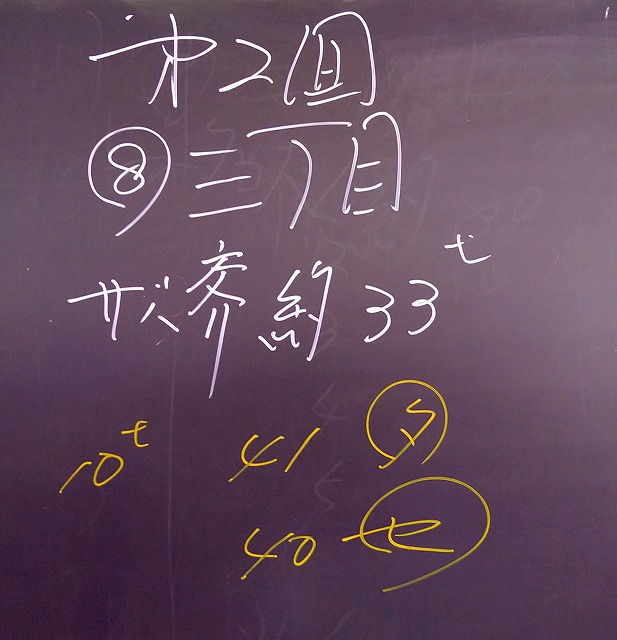 第2回
⑧三丁目
サバ 約33t
10t 41
40 セ